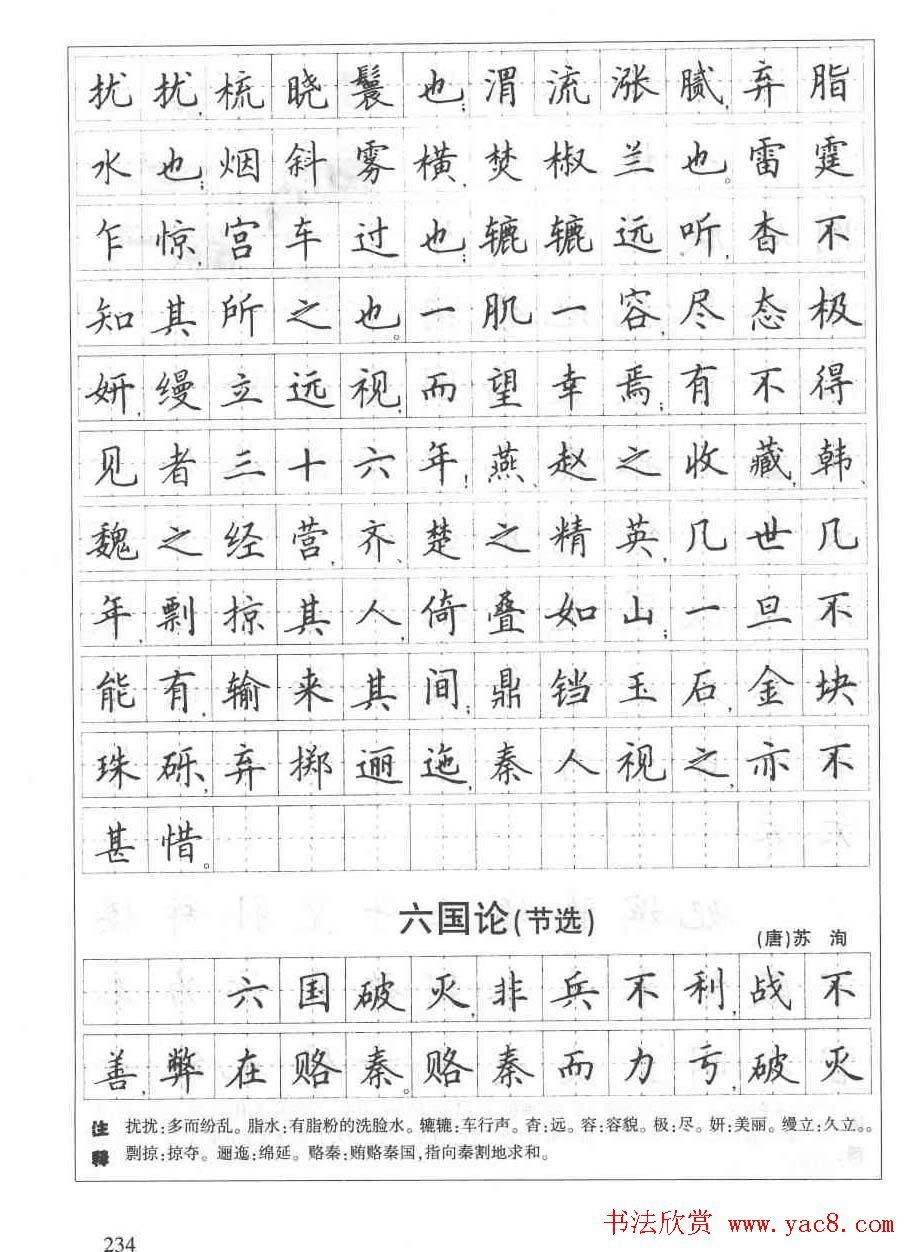 扰扰,梳晓鬟也;渭流涨腻,弃脂
水也;烟斜雾横,焚椒兰也。雷霆
乍惊,宫车过也;辘辘远听,杳不
知其所之也。一肌一容,尽态极
妍,缦立远视,而望幸焉;有不得
见者三十六年!燕、赵之收藏,韩、
魏之经营,齐、楚之精英,几世几
年,剽掠其人,倚叠如山;一旦不
能有,输来其间;鼎铛玉石,金块
珠砾,弃掷逦迤,秦人视之,亦不
甚惜。
六国论(节选)
(唐)苏 洵
六国破灭,非兵不利,战不
善,弊在赂秦。赂秦而力亏,破灭
注释
扰扰:多而纷乱。脂水:有脂粉的洗脸水。辘辘:车行声。杳:远。容:容貌。极:尽。妍:美丽。缦立:久立。。
剽掠:掠夺。逦迤:绵延。赂秦:贿赂秦国,指向秦割地求和。
234
书法欣赏 www.yac8.com